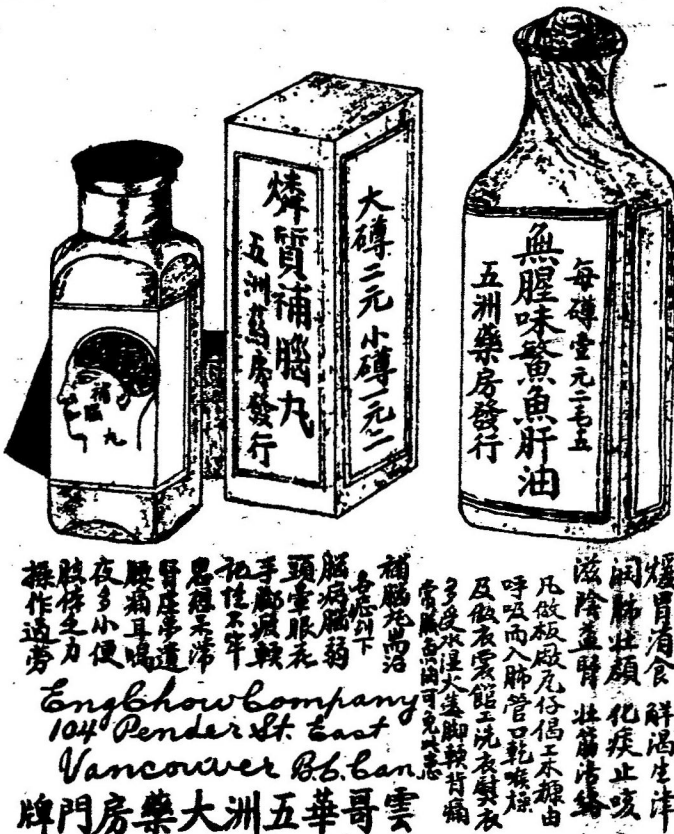 每罇壹元二毛五
無腥味鰵魚肝油
五洲藥房發行
大罇二元小罇一元二
燐質補腦丸
五洲葯房發行
補腦丸
煖胃消食 解渴生津
潤肺壯顏 化痰止咳
滋陰益腎 壯筋活絡
凡做板廠瓦仔偈工木糠由
呼吸而入肺管口乾喉燥
及做衣裳館工洗衣熨衣
多受水湿火蒸脚軟背痛
常服魚油可免此患
補腦丸專治
各症列下
腦病腦弱
頭暈眼花
手脚疲軟
記性不牢
思想呆滯
腎虛夢遺
腰痛耳鳴
夜多小便
肢体乏力
操作過勞
Eng Chow Company
104 Pender St. East
Vancouver B.C. Can.
雲哥華五洲大藥房門牌